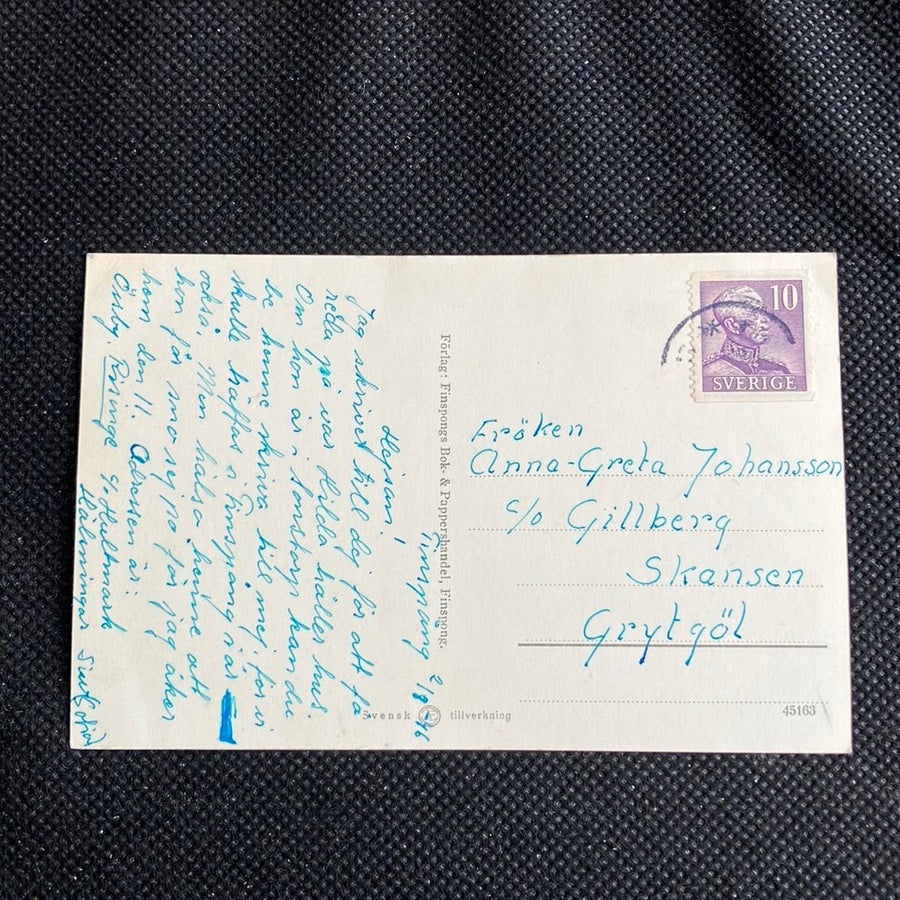 Finspång 2/8 1946
Hejsan!
Jag skrivet till dej för att få
reda på var Hilda håller hus.
Om hon är i Tomstorp kan du
be henne skriva till mej, för vi
skulle träffas i Finspång när
också. Men hälsa henne att
hon får sno reppa för jag åker
hem den 11. Adressen är:
Risinge c/o Hultmark
Hälsningar
Förlag: Finspongs Bok- & Pappershandel, Finspong.
Svensk tillverkning
10
SVERIGE
Fröken
Anna-Greta Johansson
c/o Gillberg
Skansen
Grytgöl
45163